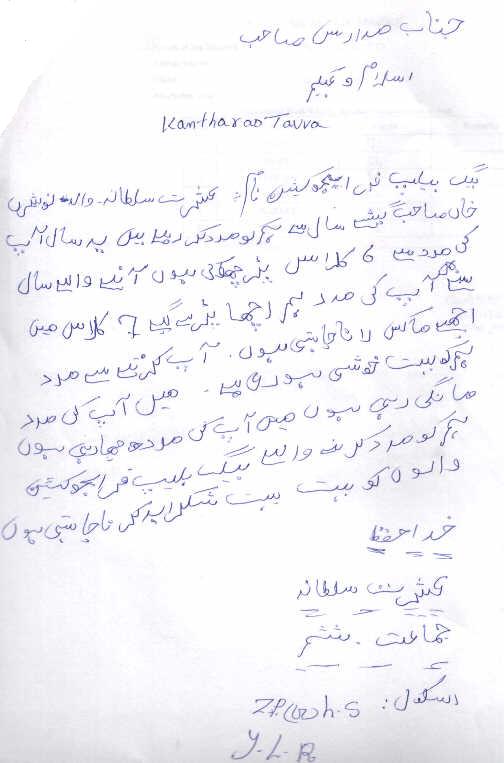 جناب مدارس صاحب
اسلام و علیم
Kantharao Tavva
بیگ ہیلپ فار ایجوکیشن نام: عشرت سلطانہ - والد نوشیرن
خان صاحب پچھلے سال سے ہم کو مدد کر رہے ہیں یہ سال آپ
کی مدد سے 6 کلاس پڑھ چکی ہوں آنے والے سال
آپ کی مدد ہم اچھا پڑھیں گے 7 کلاس میں
اچھے مارکس لانا چاہتی ہوں. آپ کرتے سے مدد
ہم کو بہت خوشی ہو رہی ہے. میں آپ کی مدد
مانگی رہی ہوں میں آپ کی مدد چاہتی ہوں
ہم کو مدد کرنے والے بیگ ہیلپ فار ایجوکیشن
والوں کو بہت بہت شکریہ ادا کرنا چاہتی ہوں
خدا حفظ
عشرت سلطانہ
جماعت . ششم
اسکول: Z.P. h.s
Y.L.R